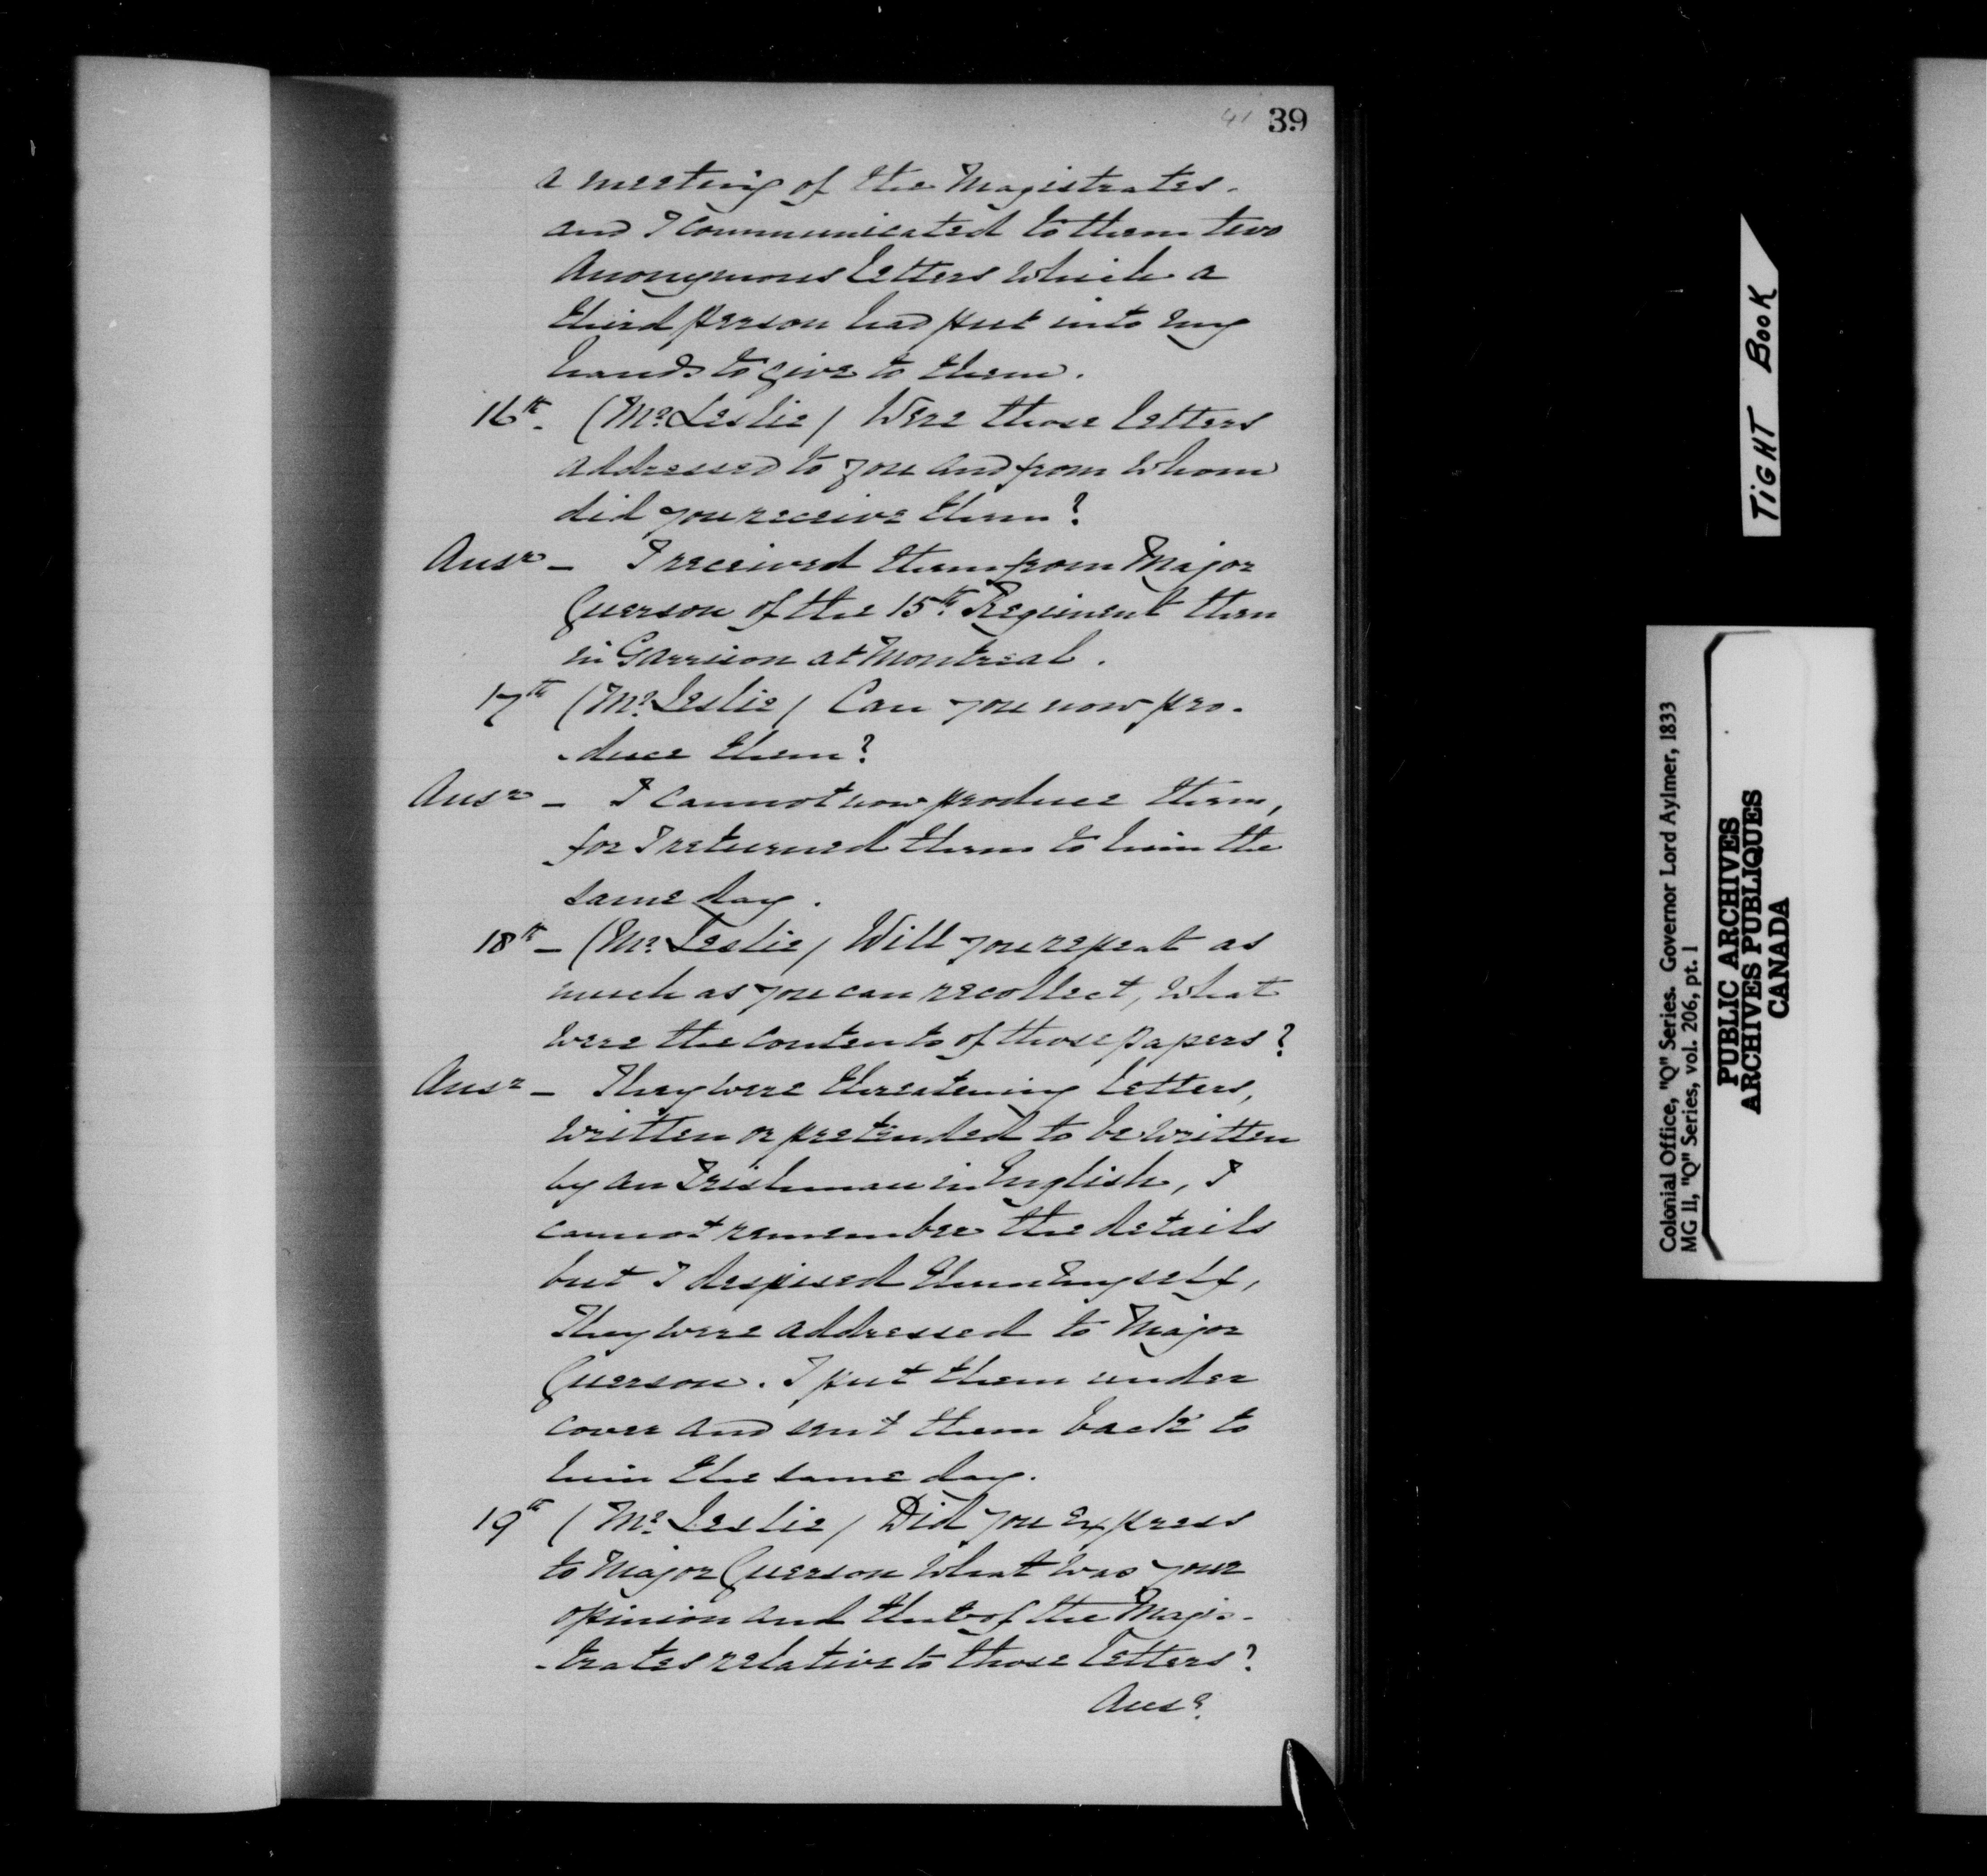 41 39
a meeting of the Magistrates.
and I communicated to them two
Anonymous letters which a
third person had put into my
hands to give to them.
16th. (Mr. Leslie) Were those letters
addressed to you and from whom
did you receive them?
Ansr - I received them from Major
Guerson of the 15th. Regiment then
in Garrison at Montreal.
17th (Mr. Leslie) Can you now pro-
-duce them?
Ansr - I cannot now produce them,
for I returned them to him the
same day.
18th - (Mr. Leslie) Will you repeat as
much as you can recollect, what
were the contents of those papers?
Ansr - They were threatening letters,
written or pretended to be written
by an Irishman in English, I
cannot remember the details
but I despised them myself,
They were addressed to Major
Guerson. I put them under
cover and sent them back to
him the same day.
19th (Mr. Leslie) Did you express
to Major Guerson what was your
opinion and that of the Magis-
-trates relative to those letters?
Ansr.
TIGHT BOOK
Colonial Office, "Q" Series. Governor Lord Aylmer, 1833
MG 11, "Q" Series, vol. 206, pt. 1
PUBLIC ARCHIVES
ARCHIVES PUBLIQUES
CANADA